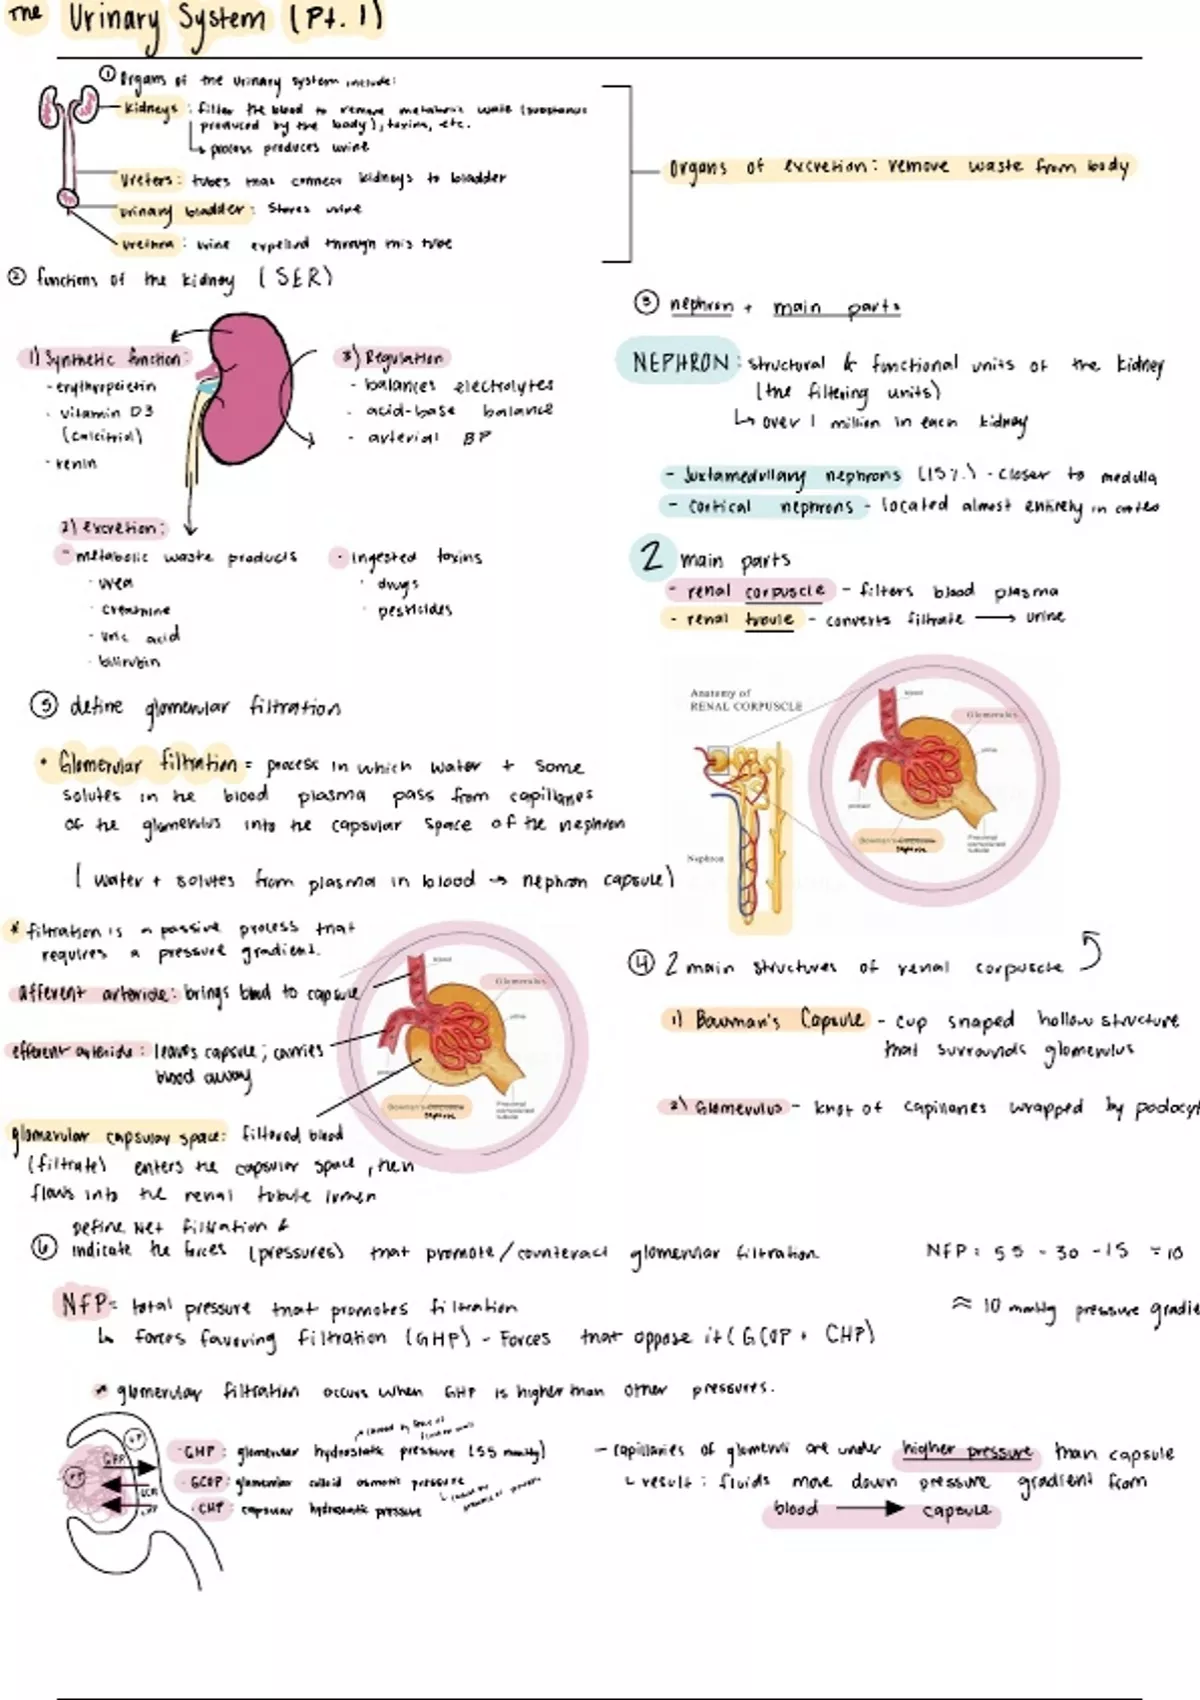 The Urinary System (Pt. 1)
① Organs of the urinary system include:
kidneys: filter the blood to remove metabolic waste (substances
produced by the body), toxins, etc.
↳ process produces urine
ureters: tubes that connect kidneys to bladder
urinary bladder: stores urine
urethra: urine expelled through this tube
Organs of excretion: remove waste from body
② functions of the kidney (SER)
1) Synthetic function:
- erythropoietin
- vitamin D3
(calcitriol)
- renin
3) Regulation
- balances electrolytes
- acid-base balance
- arterial BP
2) excretion:
- metabolic waste products
· urea
· creatinine
· uric acid
· bilirubin
· ingested toxins
· drugs
· pesticides
③ nephron + main parts
NEPHRON: structural & functional units of the kidney
(the filtering units)
↳ over 1 million in each kidney
- Juxtamedullary nephrons (15%) - closer to medulla
- cortical nephrons - located almost entirely in cortex
2 main parts
- renal corpuscle - filters blood plasma
- renal tubule - converts filtrate → urine
Anatomy of
RENAL CORPUSCLE
blood
Glomerulus
urine
Bowman's
capsule
Proximal
convoluted
tubule
Nephron
④ 2 main structures of renal corpuscle
1) Bowman's Capsule - cup shaped hollow structure
that surrounds glomerulus
2) Glomerulus - knot of capillaries wrapped by podocyt
⑤ define glomerular filtration
• Glomerular filtration = process in which water + some
solutes in the blood plasma pass from capillaries
of the glomerulus into the capsular space of the nephron
( water + solutes from plasma in blood → nephron capsule)
* filtration is a passive process that
requires a pressure gradient.
afferent arteriole: brings blood to capsule
efferent arteriole: leaves capsule; carries
blood away
glomerular capsular space: filtered blood
(filtrate) enters the capsular space, then
flows into the renal tubule lumen
blood
Glomerulus
urine
Bowman's
capsule
Proximal
convoluted
tubule
⑥ Define Net filtration &
indicate the forces (pressures) that promote/counteract glomerular filtration
NFP: 55 - 30 - 15 = 10
≈ 10 mmHg pressure gradie
NFP= total pressure that promotes filtration
↳ forces favoring filtration (GHP) - Forces that oppose it (GCOP + CHP)
* glomerular filtration occurs when GHP is higher than other pressures.
GHP
· GHP: glomerular hydrostatic pressure (55 mmHg)
· GCOP: glomerular colloid osmotic pressure
· CHP: capsular hydrostatic pressure
- capillaries of glomeruli are under higher pressure than capsule
↳ result: fluids move down pressure gradient from
blood → capsule